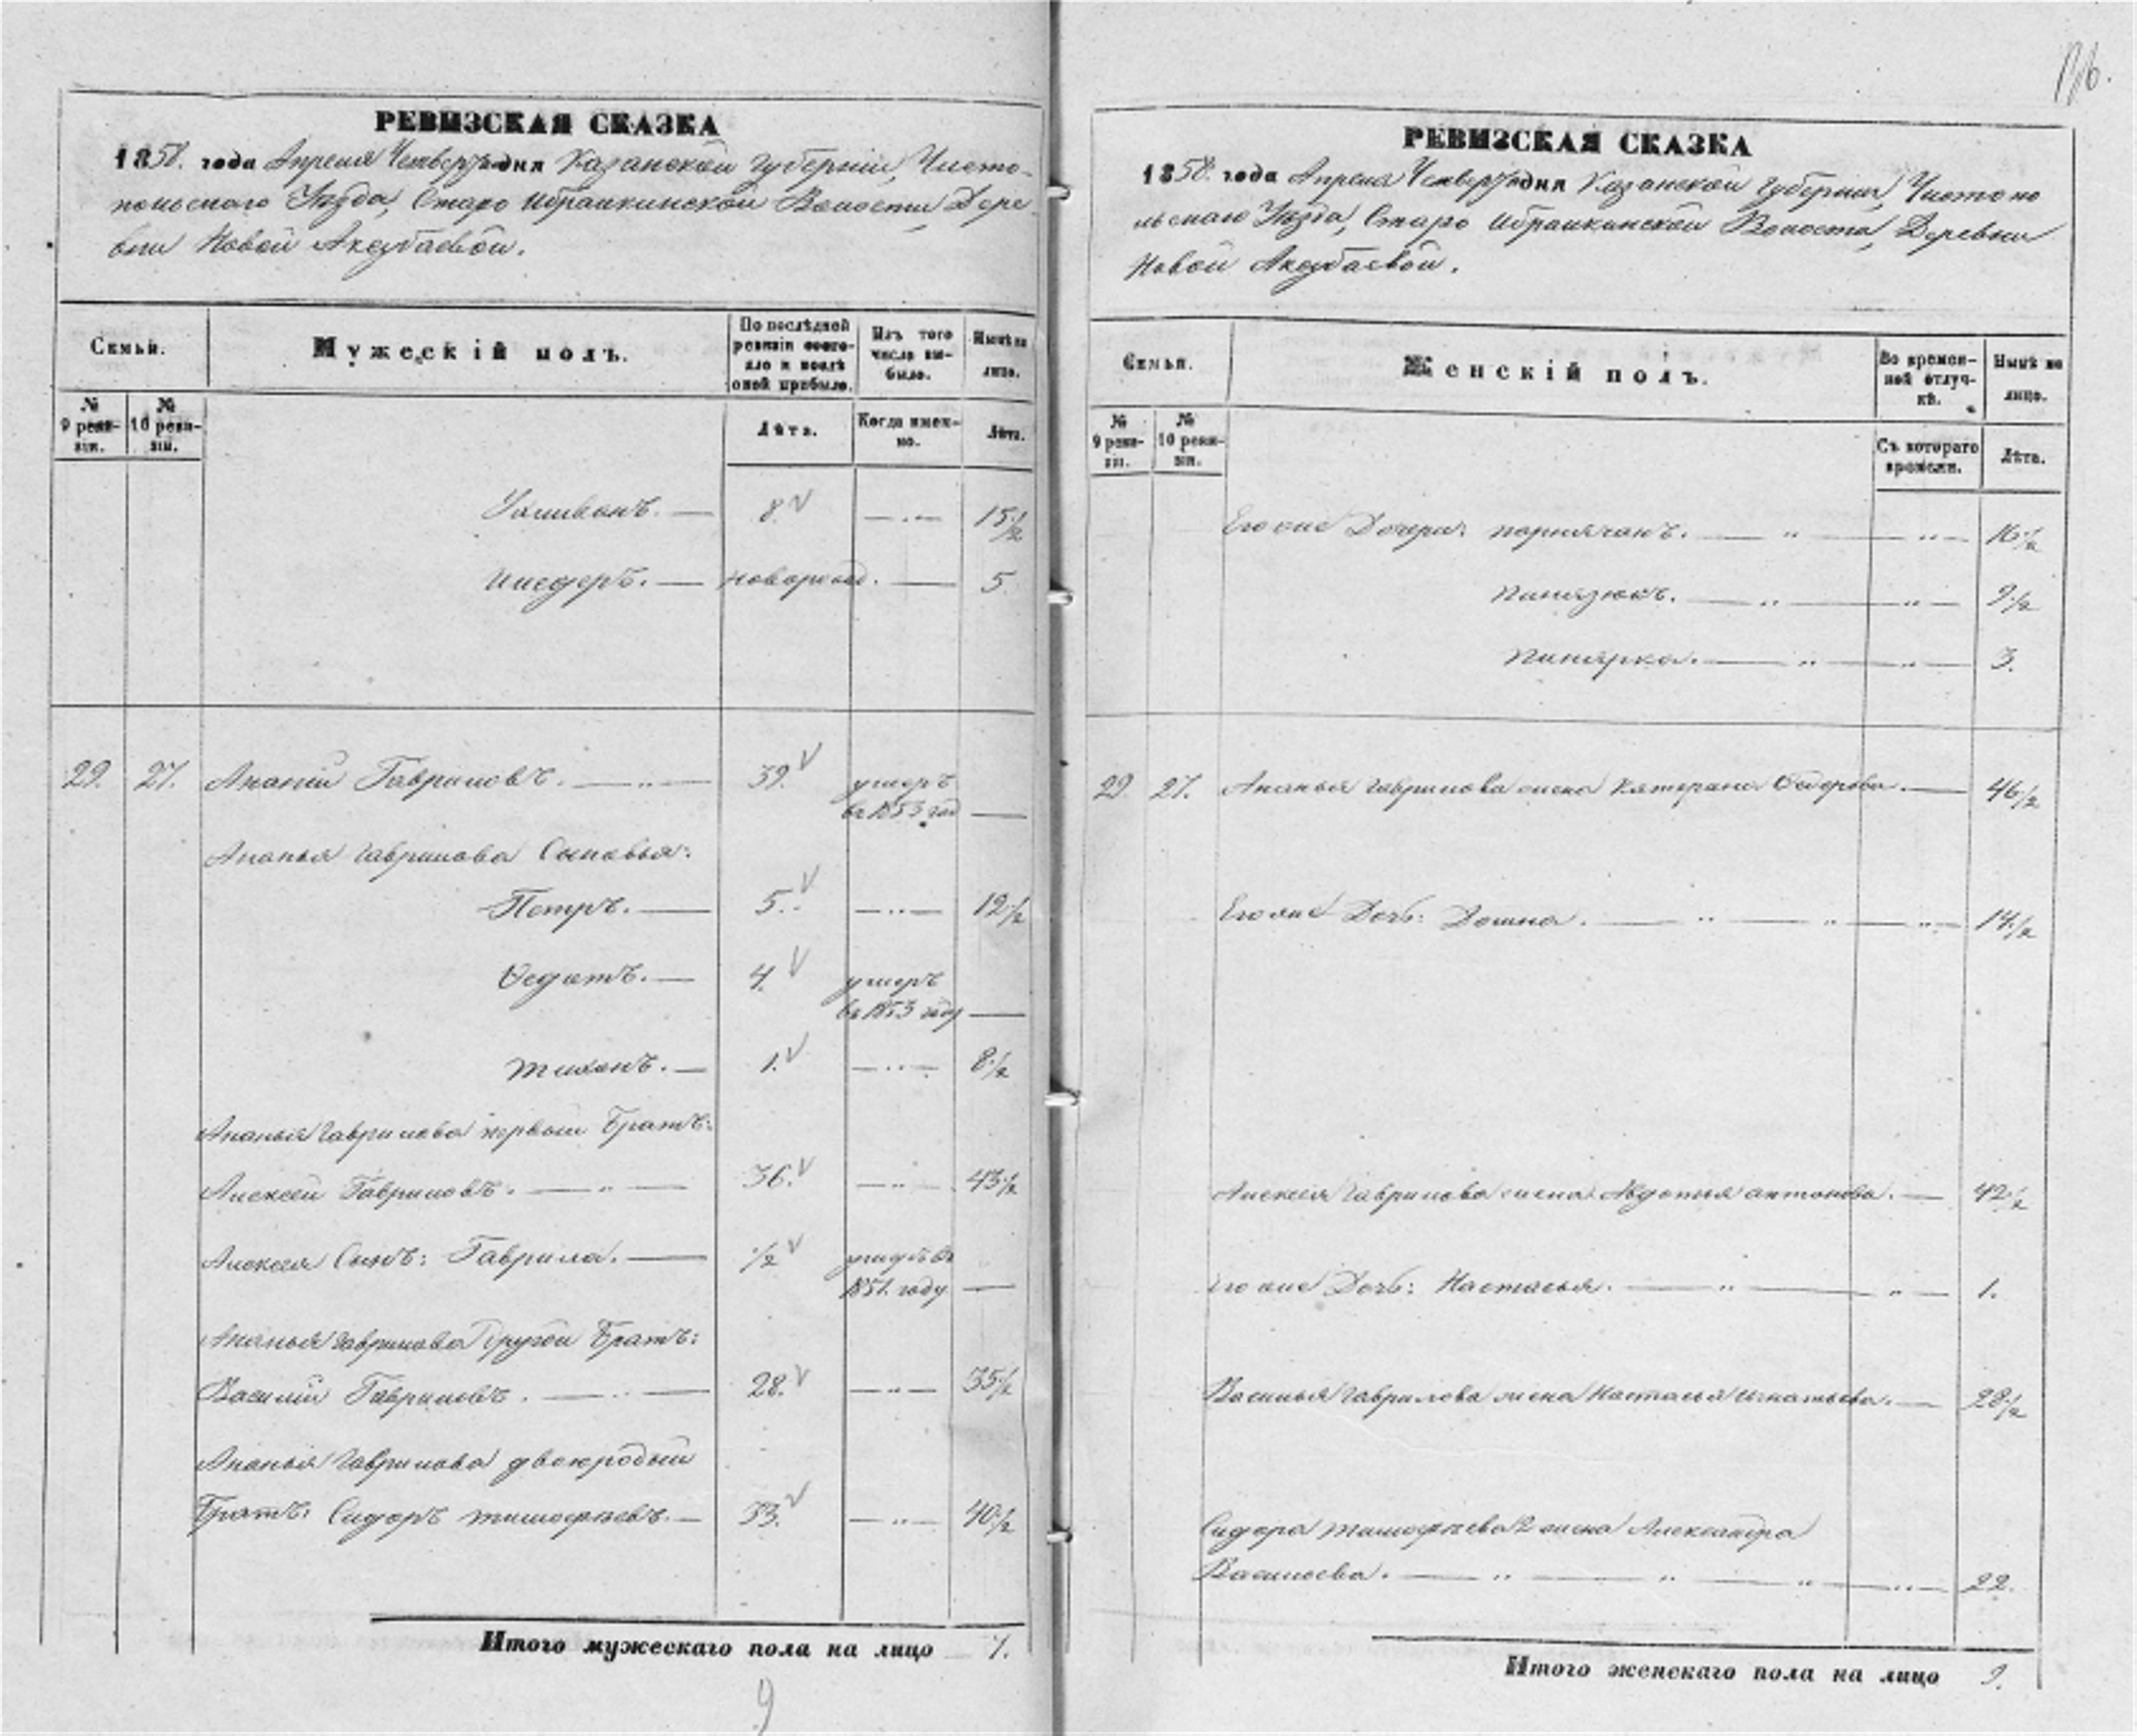 РЕВИЗСКАЯ СКАЗКА
1858. года Апреля Четвертаго дня Казанской Губерніи, Чисто-
польскаго Уезда, Старо Ибрайкинской Волости, Дере
вни Новой Аксубаевой.
Семьи.
Мужескій полъ.
По послѣдней ревизіи состояло и послѣ оной прибыло.
Изъ того числа выбыло.
Нынѣ на лицо.
№ 9 ревизіи.
№ 10 ревизіи.
Лѣта.
Когда именно.
Лѣта.
8. 15 1/2
новорожд. 5
29. 27. Ананій Гавриловъ. 39. умеръ
въ 1853 год
Ананья Гаврилова Сыновья:
Петръ. 5. 12 1/2
Ѳедотъ. 4. умеръ
въ 1853 году
Тихонъ. 1. 8 1/2
Ананья Гаврилова первый Братъ:
Алексей Гавриловъ. 36. 43 1/2
Алексея Сынъ: Гаврила. 1/2 умеръ въ
1851. году
Ананья Гаврилова другой Братъ:
Василій Гавриловъ. 28. 35 1/2
Ананья Гаврилова двоюродый
Братъ: Сидоръ Тимофеевъ. 33. 40 1/2
Итого мужескаго пола на лицо 7.
9
РЕВИЗСКАЯ СКАЗКА
1858. года Апреля Четвертаго дня Казанской Губерніи, Чистопо
льскаго Уезда, Старо Ибрайкинской Волости, Деревни
Новой Аксубаевой.
Семьи.
Женскій полъ.
Во временной отлучкѣ.
Нынѣ на лицо.
№ 9 ревизіи.
№ 10 ревизіи.
Съ котораго времени.
Лѣта.
Его же Дочери: 16 1/2
9 1/2
3.
29. 27. Ананья Гаврилова жена Катерина Ѳедорова. 46 1/2
Его же Дочь: Домна. 14 1/2
Алексея Гаврилова жена Авдотья Антонова. 42 1/2
Его же Дочь: Настасья. 1.
Василья Гаврилова жена Настасья Игнатьева. 28 1/2
Сидора Тимофеева 2 жена Александра
Васильева. 22.
Итого женскаго пола на лицо 9.